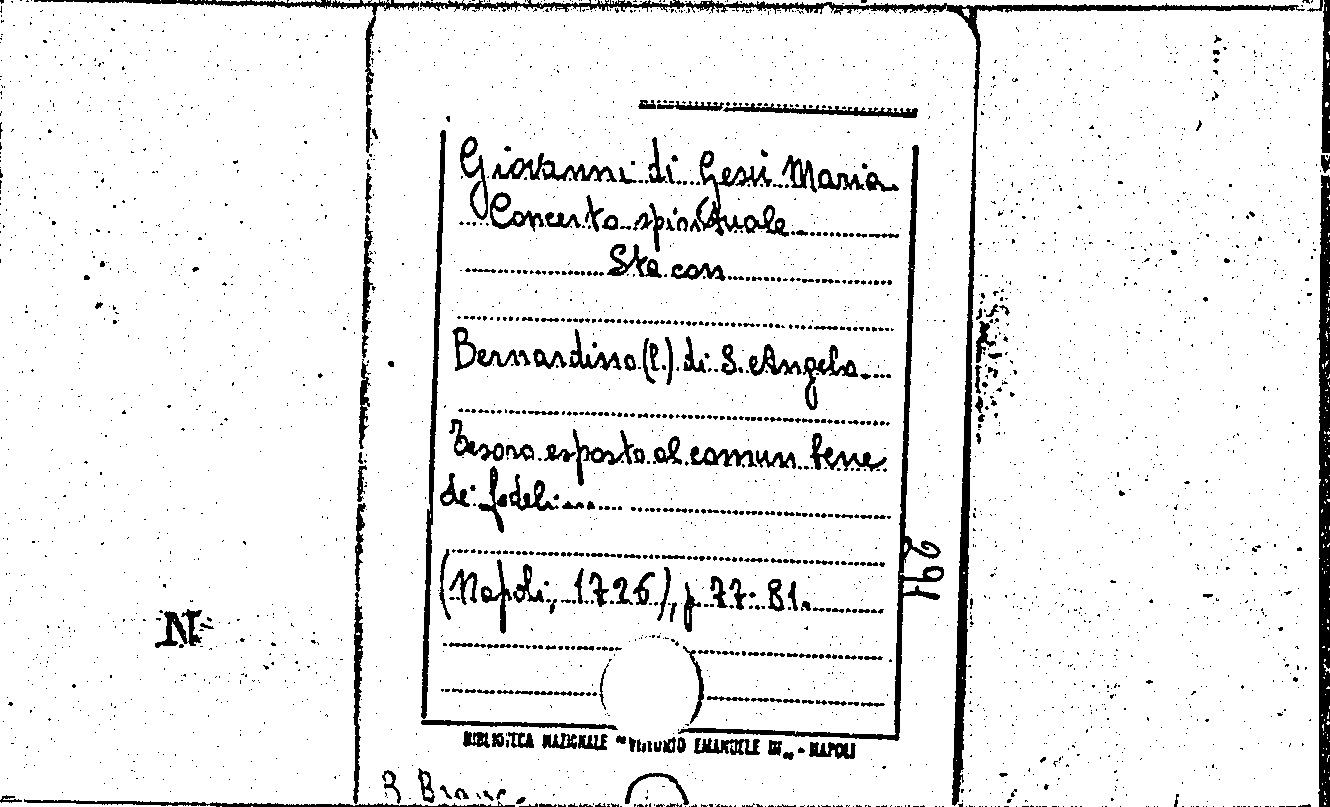 Giovanni di Gesù Maria
Concerto spirituale
Sta con
Bernardino (P.) di S. Angelo
Tesoro esposto al comun bene
dei fedeli....
(Napoli, 1726), p. 77-81.
291
N
BIBLIOTECA NAZIONALE "VITTORIO EMANUELE III" - NAPOLI